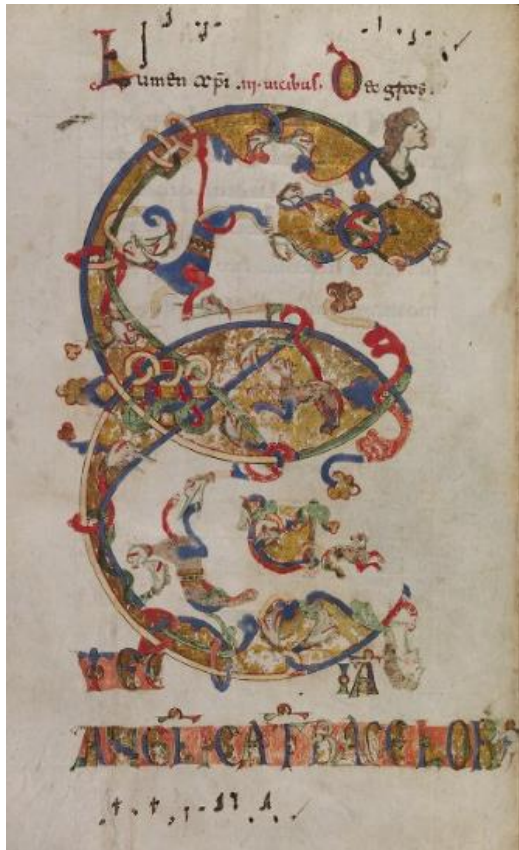 Lumen xp̄i .iii. uicibus. Deo gr̄as.
E
TET IĀ
ANGELICA TURBA CELORŪ